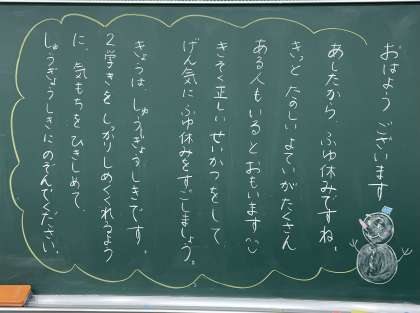 おはよう ございます
あしたから、ふゆ休みですね。
きっと たのしいよていが たくさん
ある人もいる とおもいます
きそく正しい せいかつを して、
げん気に ふゆ休みをすごしましょう。
きょうは、しゅうぎょうしきです。
2学きを しっかりしめくくれるよう
に、気もちを ひきしめて、
しゅうぎょうしきにのぞんでください。